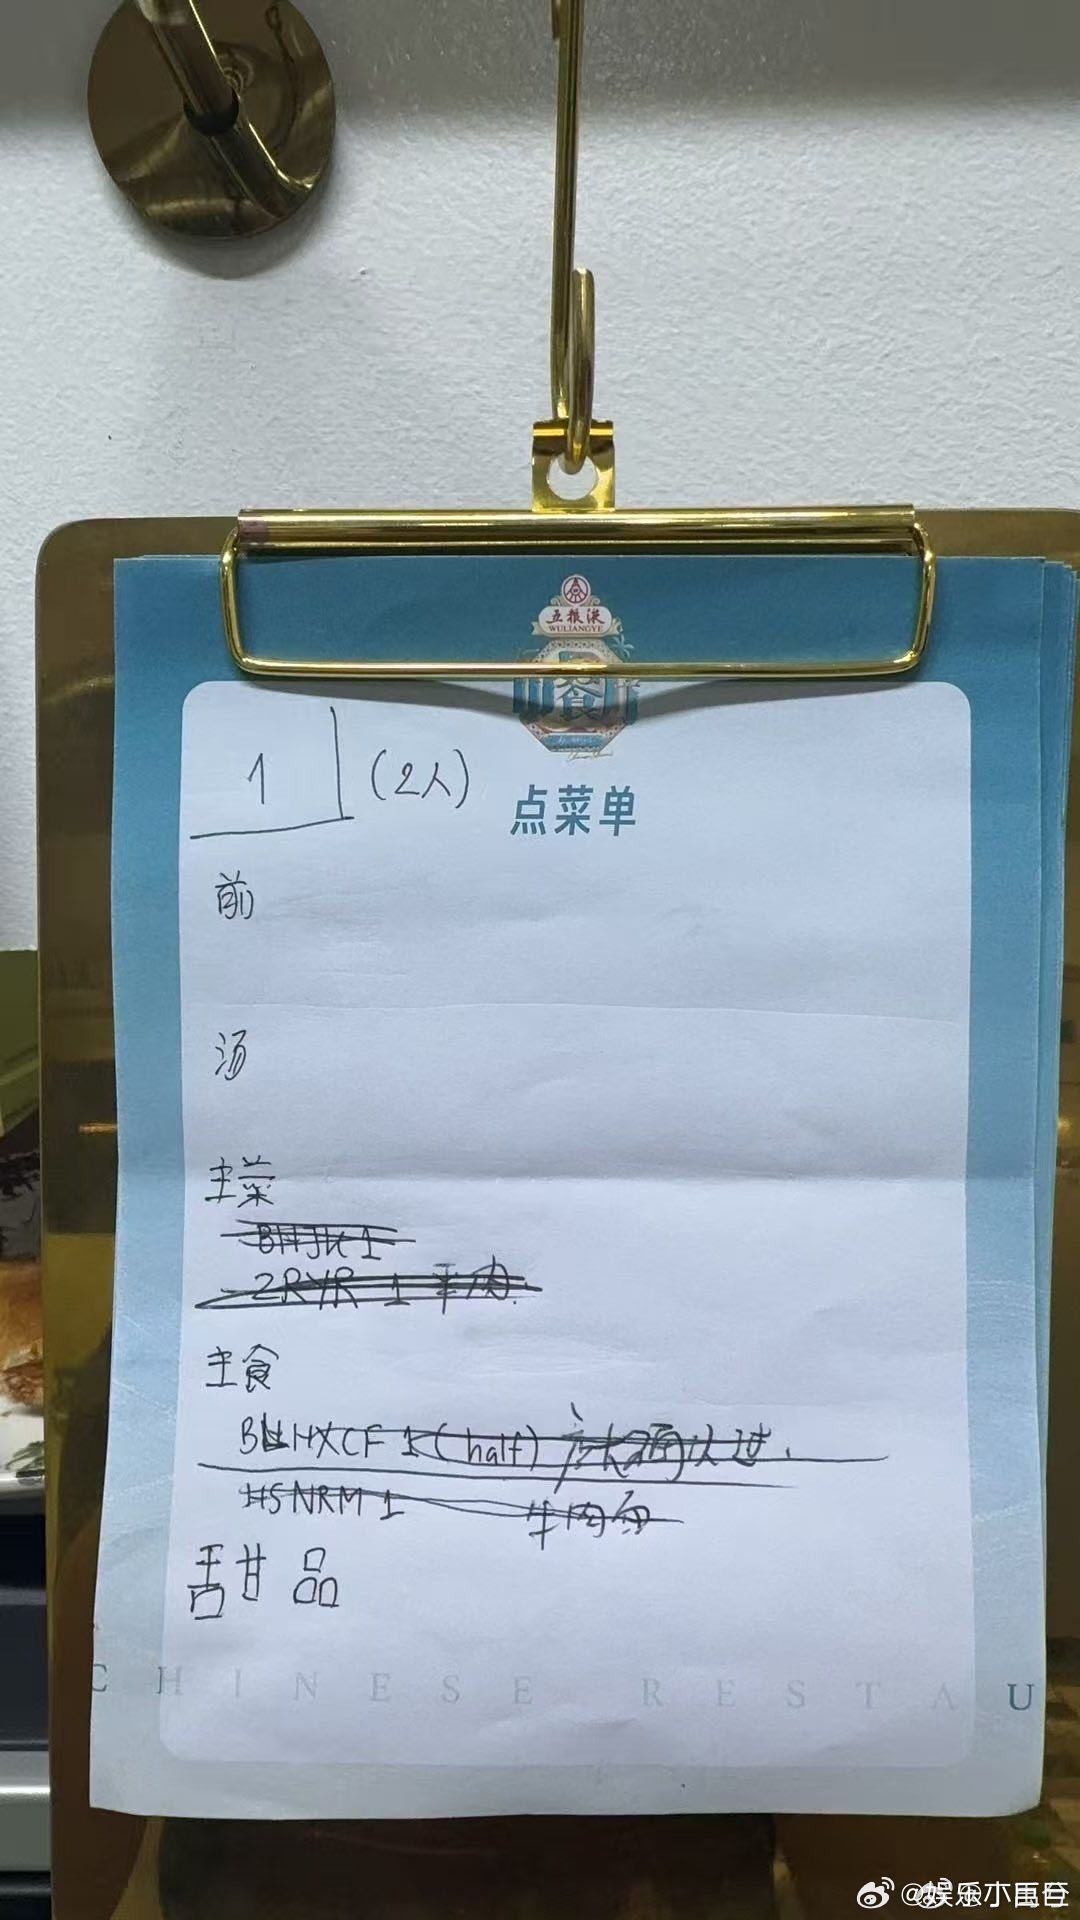 五粮液
WULIANGYE
中餐厅
1 (2人)
点菜单
前
汤
主菜
BHJK 1
ZRYR 1 羊肉.
主食
BLHXCF 1 (half) 店长确认过.
HSNRM 1 牛肉面
甜品
CHINESE RESTAU